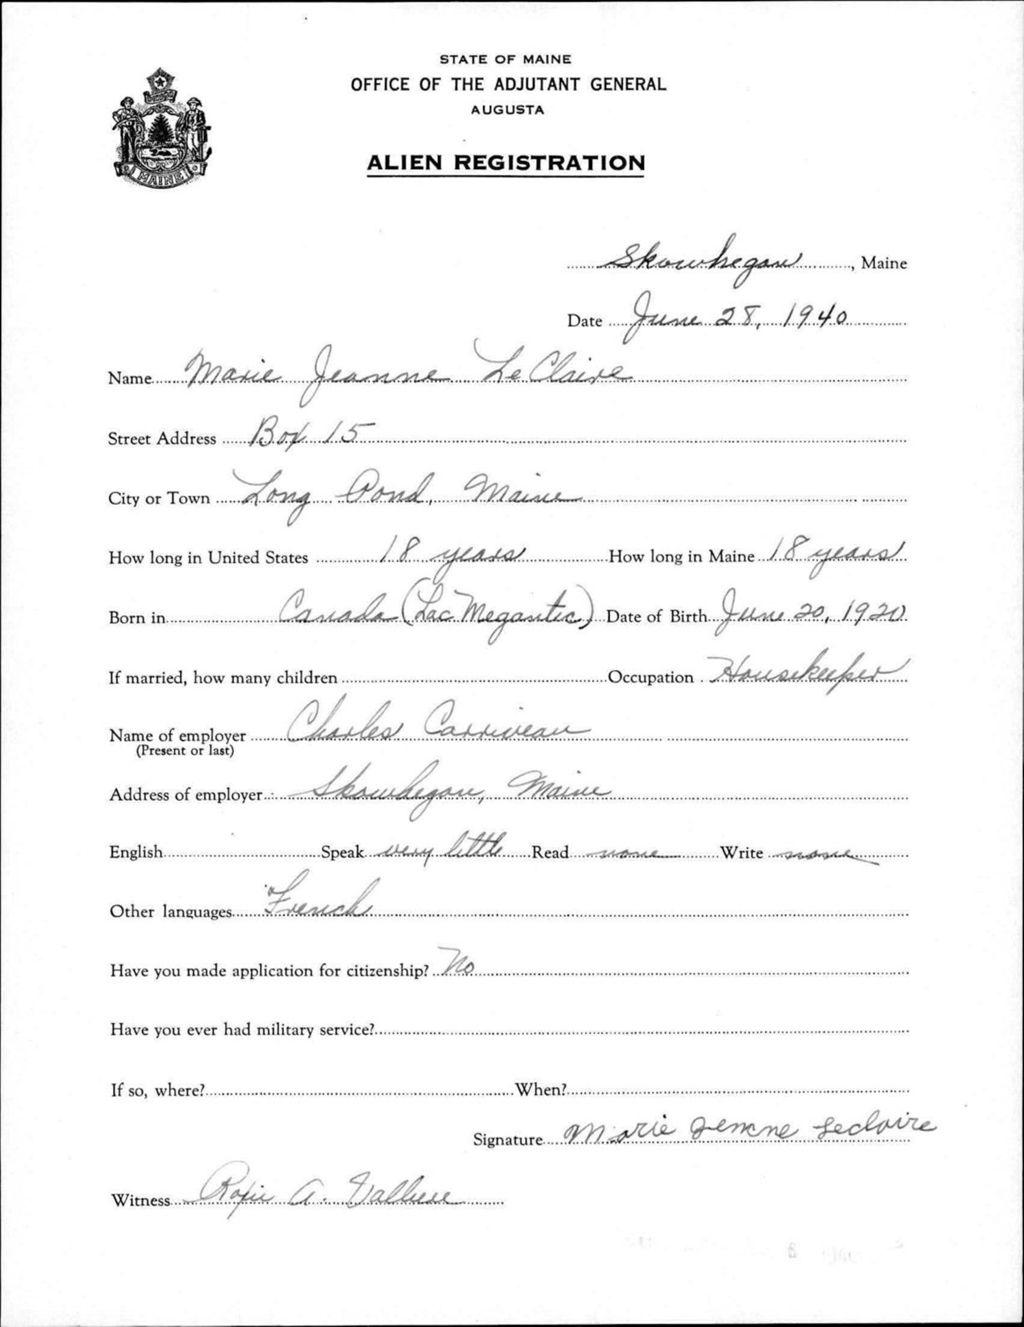 STATE OF MAINE
OFFICE OF THE ADJUTANT GENERAL
AUGUSTA
ALIEN REGISTRATION
MAINE
Skowhegan, Maine
Date June 28, 1940
Name Marie Jeanne LeClaire
Street Address Box 15
City or Town Long Pond, Maine
How long in United States 18 years How long in Maine 18 years
Born in Canada (Lac Megantic) Date of Birth June 20, 1920
If married, how many children Occupation Housekeeper
Name of employer Charles Carriveau
(Present or last)
Address of employer Skowhegan, Maine
English Speak very little Read none Write none
Other languages French
Have you made application for citizenship? No
Have you ever had military service?
If so, where? When?
Signature Marie Jenne Leclaire
Witness A.